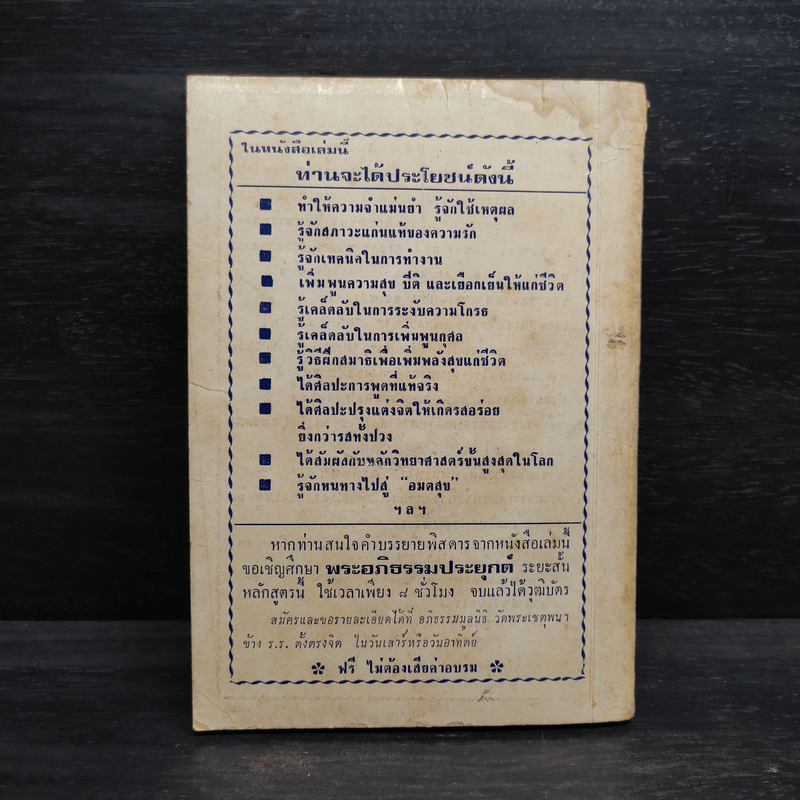 ในหนังสือเล่มนี้
ท่านจะได้ประโยชน์ดังนี้
ทำให้ความจำแม่นยำ รู้จักใช้เหตุผล
รู้จักสภาวะแก่นแท้ของความรัก
รู้จักเทคนิคในการทำงาน
เพิ่มพูนความสุข ปีติ และเยือกเย็นให้แก่ชีวิต
รู้เคล็ดลับในการระงับความโกรธ
รู้เคล็ดลับในการเพิ่มพูนกุศล
รู้วิธีฝึกสมาธิเพื่อเพิ่มพลังสุขแก่ชีวิต
ได้ศิลปะการพูดที่แท้จริง
ได้ศิลปะปรุงแต่งจิตให้เกิดรสอร่อย
ยิ่งกว่ารสทั้งปวง
ได้สัมผัสกับหลักวิทยาศาสตร์ขั้นสูงสุดในโลก
รู้จักหนทางไปสู่ "อมตสุข"
ฯลฯ
หากท่านสนใจคำบรรยายพิสดารจากหนังสือเล่มนี้
ขอเชิญศึกษา พระอภิธรรมประยุกต์ ระยะสั้น
หลักสูตรนี้ ใช้เวลาเพียง ๘ ชั่วโมง จบแล้วได้วุฒิบัตร
สมัครและขอรายละเอียดได้ที่ อภิธรรมมูลนิธิ วัดพระเชตุพนฯ
ข้าง ร.ร. ตั้งตรงจิต ในวันเสาร์หรือวันอาทิตย์
ฟรี ไม่ต้องเสียค่าอบรม